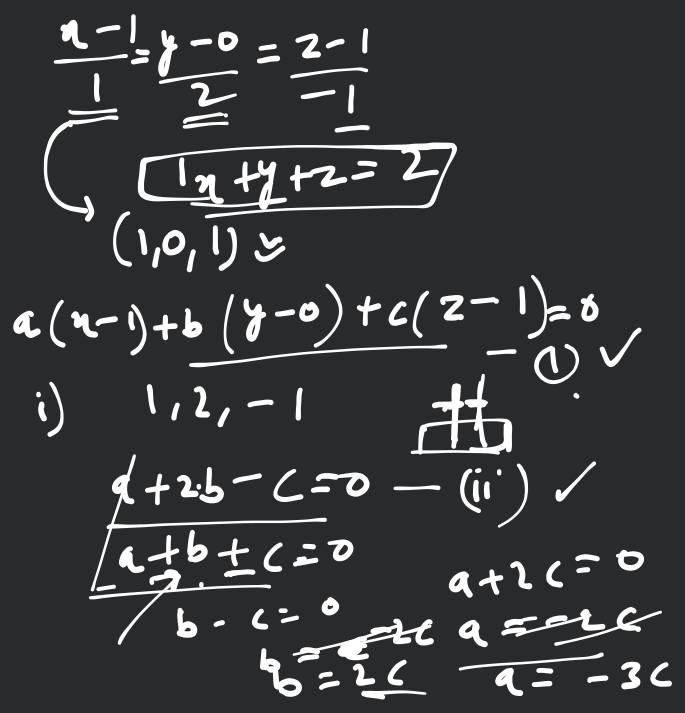 x-1/1 = y-0/2 = z-1/-1
1x+y+z=2
(1,0,1)
a(x-1)+b(y-0)+c(z-1)=0
- ①
i) 1,2,-1
a+2b-c=0 — (ii)
a+b+c=0
b-c=0
a+2c=0
b=-2c
a=-2c
b=2c
a=-3c